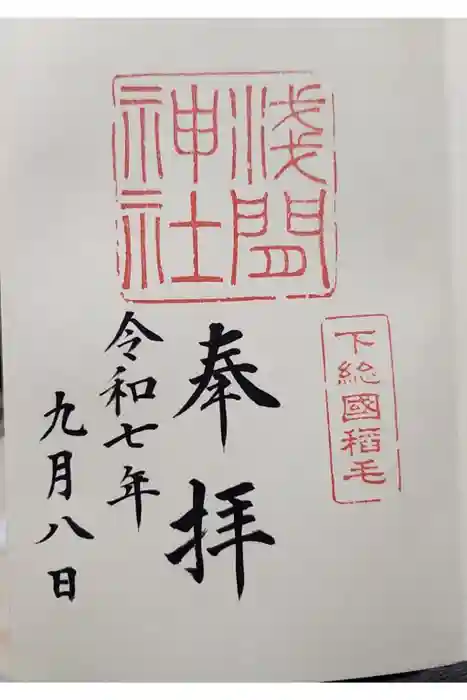 浅間
神社
下総國稻毛
奉拝
令和七年
九月八日